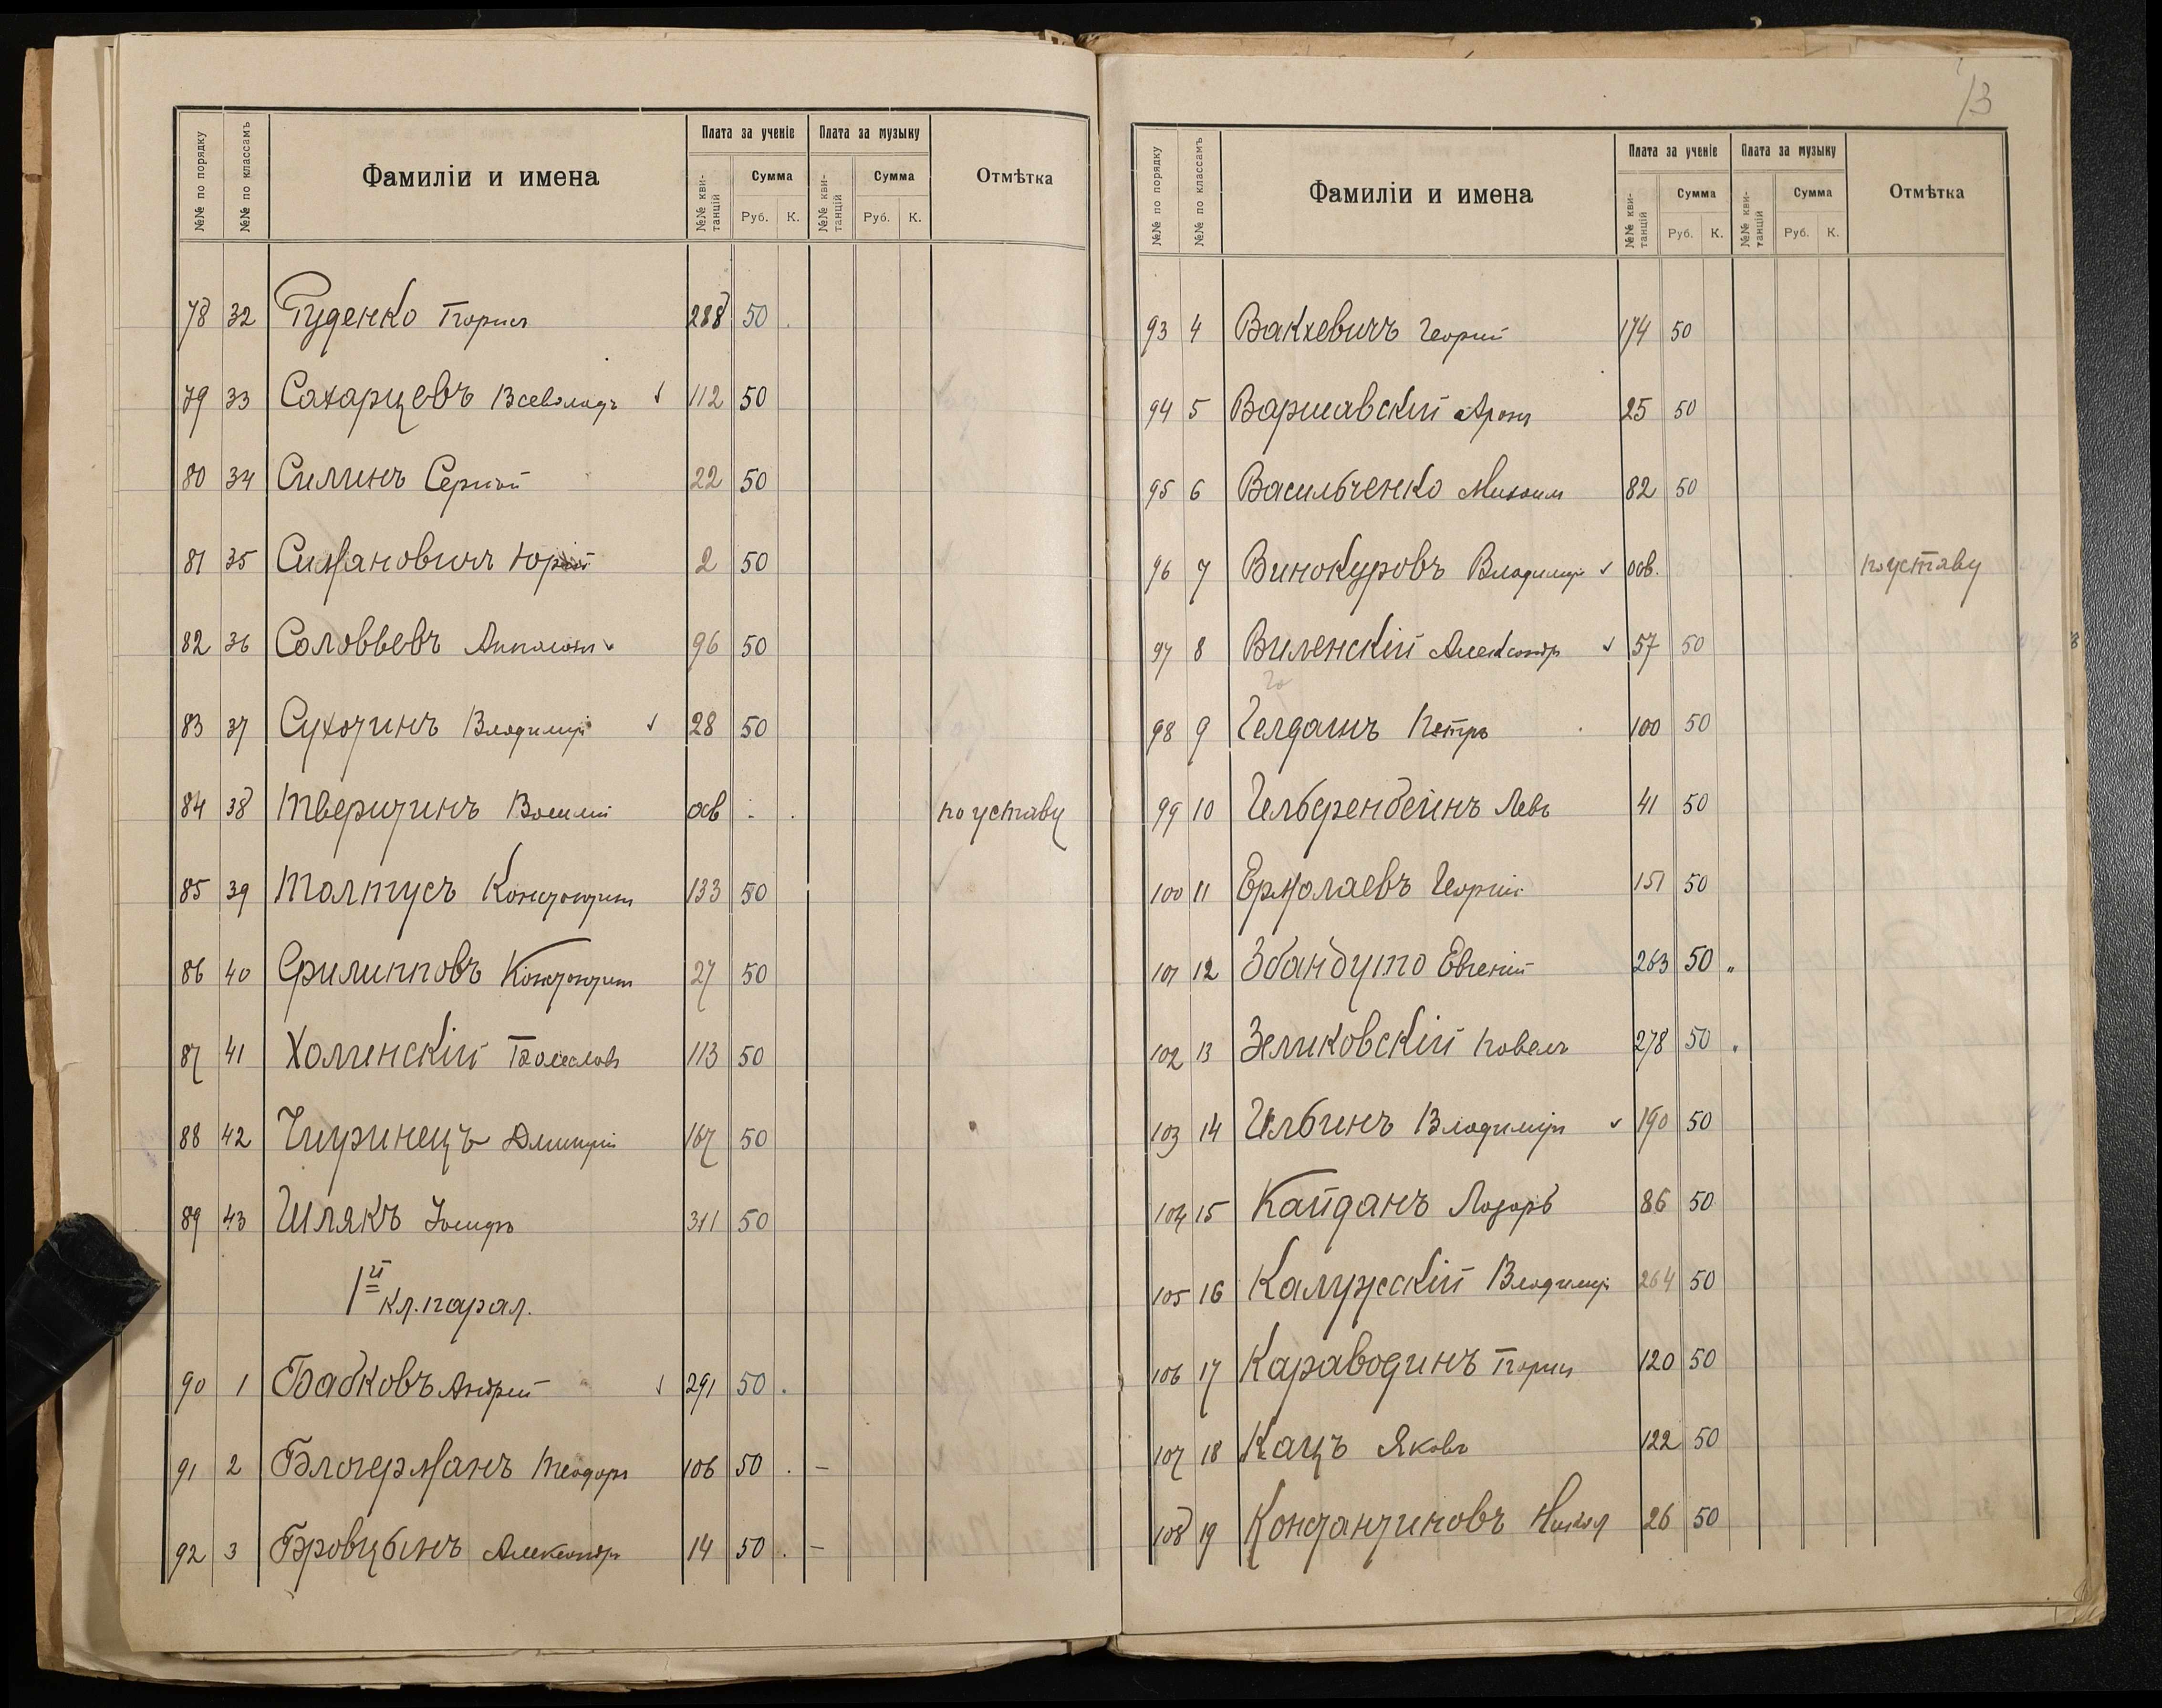 №№ по порядку
№№ по классамъ
Фамиліи и имена
Плата за ученіе
Плата за музыку
№№ кви-танцій
Сумма
Руб.
К.
№№ кви-танцій
Сумма
Руб.
К.
Отмѣтка
78 32 Руденко Борисъ 288 50
79 33 Сахарцевъ Всеволодъ ✓ 112 50
80 34 Силинъ Сергѣй 22 50
81 35 Симановичъ Юрій 2 50
82 36 Соловьевъ ✓ 96 50
83 37 Сухотинъ Владиміръ ✓ 28 50
84 38 Тверитинъ Василій ов по уставу
85 39 Толпусъ Константинъ 133 50
86 40 Филипповъ Константинъ 27 50
87 41 Холинскій Болеславъ 113 50
88 42 Чиринецъ Дмитрій 167 50
89 43 Шлякъ Іосифъ 311 50
1й кл. парал.
90 1 Бабковъ Андрей ✓ 291 50
91 2 Блогерманъ Теодоръ 106 50 . –
92 3 Бровцынъ Александръ 14 50 . –
13
№№ по порядку
№№ по классамъ
Фамиліи и имена
Плата за ученіе
Плата за музыку
№№ кви-танцій
Сумма
Руб.
К.
№№ кви-танцій
Сумма
Руб.
К.
Отмѣтка
93 4 Вакхевичъ Георгій 174 50
94 5 Варшавскій Аронъ 25 50
95 6 Васильченко Михаилъ 82 50
96 7 Винокуровъ Владиміръ ✓ осв. по уставу
97 8 Виленскій Александръ ✓ 57 50
98 9 Гелдашъ Петръ 100 50
99 10 Левъ 41 50
100 11 Ермолаевъ Георгій 151 50
101 12 Збандуто Евгеній 263 50 „
102 13 Зеликовскій Павелъ 278 50 „
103 14 Ильинъ Владиміръ ✓ 190 50
104 15 Кайданъ Лазарь 86 50
105 16 Калужскій Владиміръ 264 50
106 17 Караводинъ Борисъ 120 50
107 18 Кацъ Яковъ 122 50
108 19 Константиновъ Никол 26 50